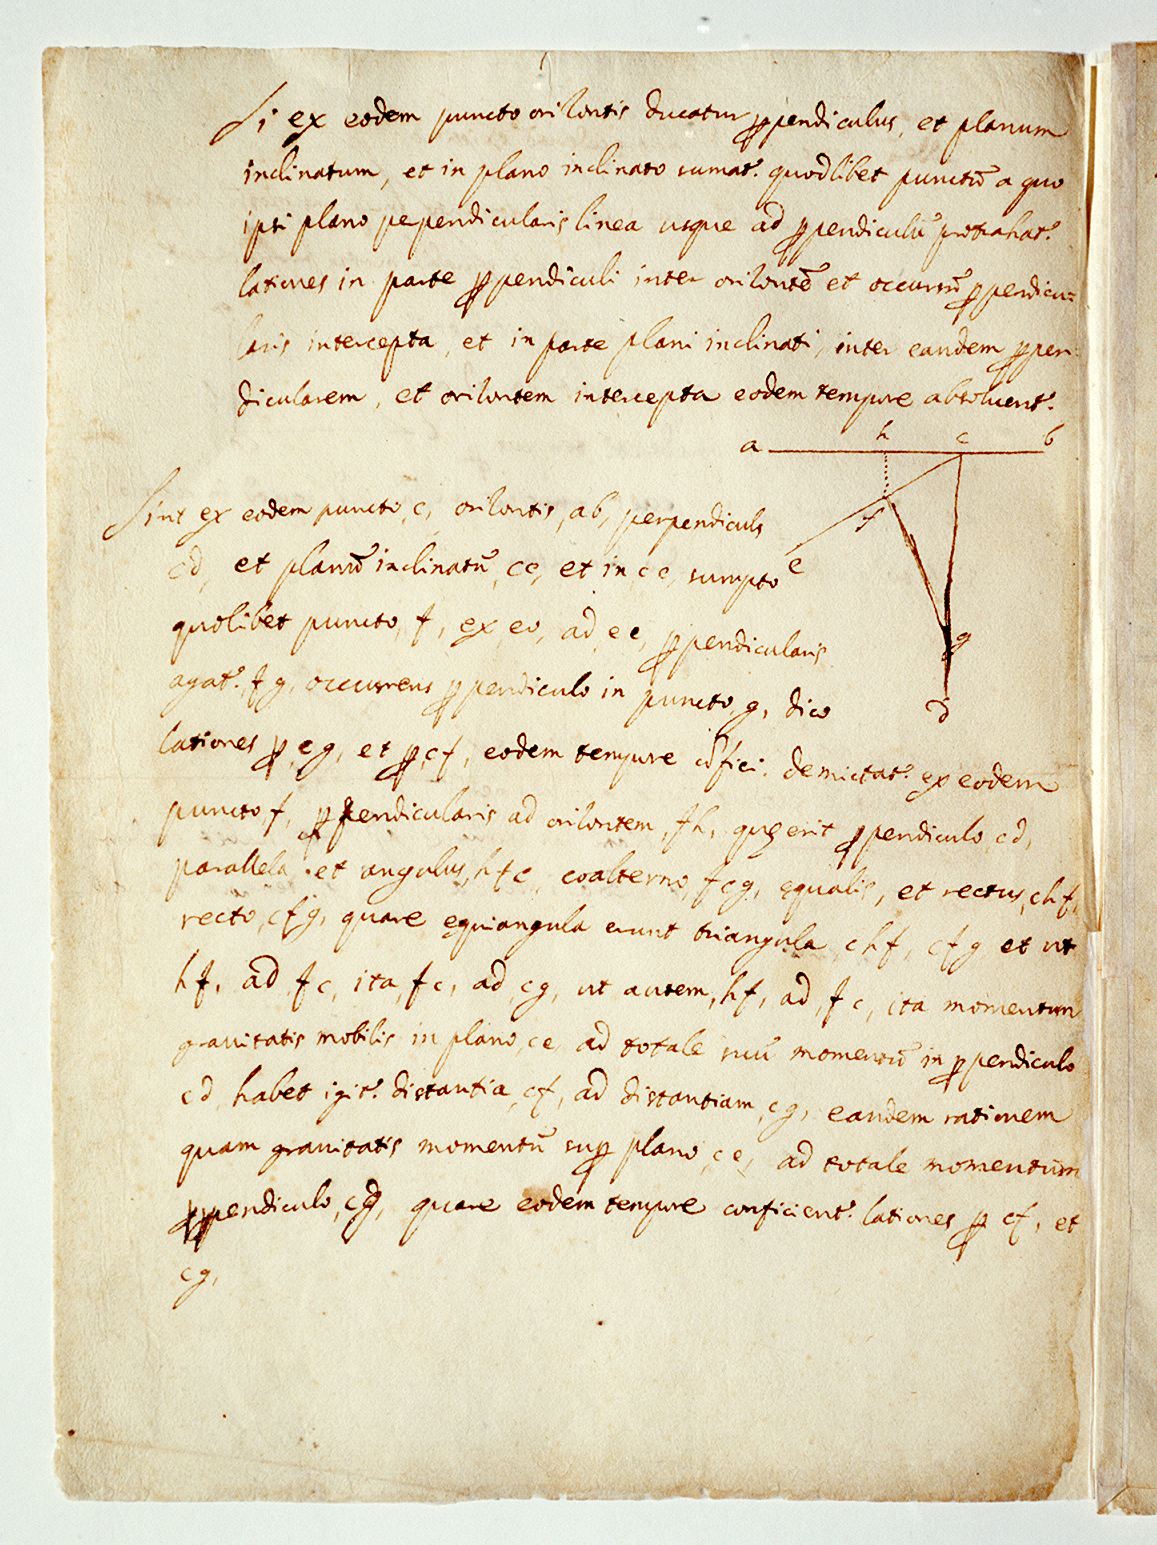 Si ex eodem puncto orizontis ducatur ꝑpendiculus, et planum
inclinatum, et in plano inclinato sumat.ʳ quodlibet punctū a quo
ipsi plano pependicularis linea usque ad ꝑpendiculū protrahat.ʳ
lationes in parte ꝑpendiculi inter orizontē et occursū ꝑpendicu=
laris intercepta, et in parte plani inclinati, inter eandem ꝑpen-
dicularem, et orizontem intercepta eodem tempore absoluent.ʳ
a h c b
Sint ex eodem puncto, c, orizontis, ab, perpendiculs
cd, et planū inclinatū, ce, et in, ce, sumpto
e f
quolibet puncto, f, ex eo, ad, ce, ꝑpendicularis
g
agat.ʳ, fg, occurrens ꝑpendiculo in puncto, g, dico
d
lationes ꝑ, cg, et ꝑ, cf, eodem tempore cōfici. demictat.ʳ ex eodem
puncto f, ꝑpendicularis ad orizontem, fh, quę erit ꝑpendiculo, cd,
parallela, et angulus, hfc, coalterno, fcg, ęqualis, et rectus, chf,
recto, cfg, quare ęquiangula erunt triangula chf, cfg et ut
hf, ad, fc, ita, fc, ad, cg, ut autem, hf, ad, fc, ita momentum
grauitatis mobilis in plano, ce, ad totale suū momentū in ꝑpendiculo
cd, habet igit.ʳ distantia, cf, ad distantiam, cg, eandem rationem
quam grauitatis momentū suꝑ plano, ce, ad totale momentum
ꝑpendiculo, cd, quare eodem tempore conficient.ʳ lationes ꝑ cf, et
cg,